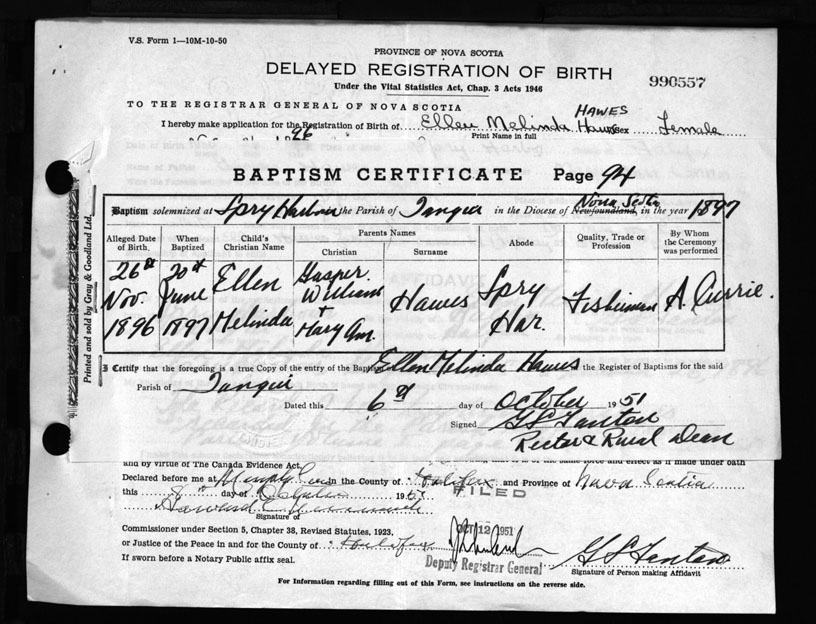 V.S. Form 1—10M-10-50
PROVINCE OF NOVA SCOTIA
DELAYED REGISTRATION OF BIRTH
990557
Under the Vital Statistics Act, Chap. 3 Acts 1946
TO THE REGISTRAR GENERAL OF NOVA SCOTIA
HAWES
I hereby make application for the Registration of Birth of Ellen Melinda Hawes Sex Female
Print Name in full
BAPTISM CERTIFICATE Page 94
Nova Scotia
Baptism solemnized at Spry Harbour the Parish of Tangier in the Diocese of Newfoundland, in the year 1897
Alleged Date of Birth. When Baptized Child's Christian Name Parents Names Christian Surname Abode Quality, Trade or Profession By Whom the Ceremony was performed
26th Nov. 1896 20th June 1897 Ellen Melinda Gasper William + Mary Ann. Hawes Spry Har. Fisherman A. Currie.
I Certify that the foregoing is a true Copy of the entry of the Baptism Ellen Melinda Hawes the Register of Baptisms for the said
Parish of Tangier
Dated this 6th day of October 1951
Signed
Rector & Rural Dean
Printed and sold by Gray & Goodland Ltd.
and by virtue of The Canada Evidence Act.
Declared before me in the County of Halifax and Province of Nova Scotia
this 8th day of October 1951
FILED
Signature of
Commissioner under Section 5, Chapter 38, Revised Statutes, 1923,
OCT 12 1951
or Justice of the Peace in and for the County of Halifax
Deputy Registrar General
If sworn before a Notary Public affix seal.
Signature of Person making Affidavit
For Information regarding filling out of this Form, see instructions on the reverse side.